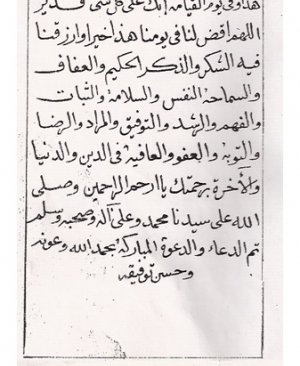 هذا وفى يوم القيامة إنك على كل شئ قدير
اللهم اقض لنا فى يومنا هذا خيرا وارزقنا
فيه الشكر والذكر الحكيم والعفاف
والسماحة النفس والسلامة والثبات
والفهم والرشد والتوفيق والمراد والرضا
والتوبة والعفو والعافية فى الدين والدنيا
والأخرة برحمتك ياارحم الراحمين وصلى
الله على سيدنا محمد وعلى آله وصحبه وسلم
تم الدعاء والدعوة المباركة بحمد الله وعونه
وحسن توفيقه